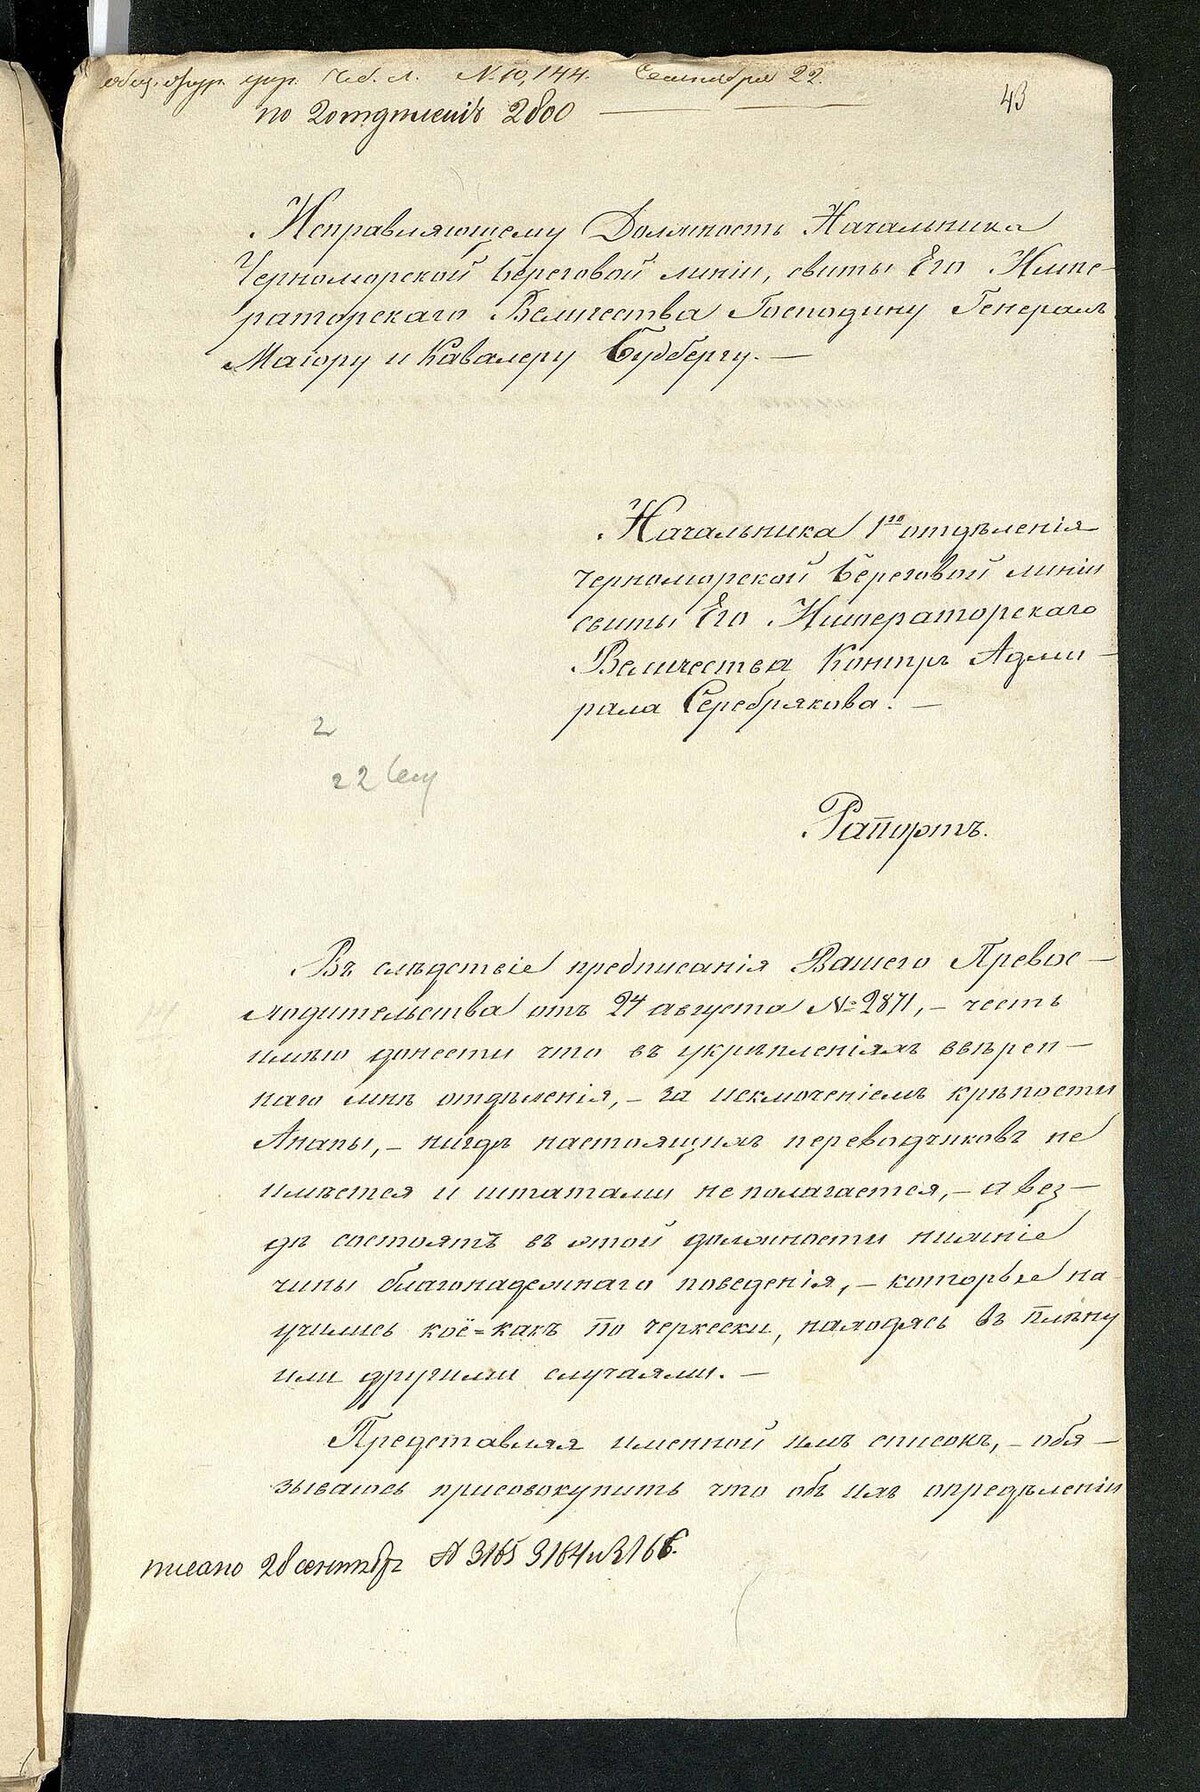 журн. Ч.б.л. № 10,144. Сентября 22.
по 2 отделенiю 2800
43
Исправляющему Должность Начальника
Черноморской Береговой линiи, свиты Его Импе-
раторскаго Величества Господину Генералъ
Маiору и Кавалеру Будбергу. —
Начальника 1го отдѣленiя
Черноморской Береговой линiи
свиты Его Императорскаго
Величества Контръ Адми-
рала Серебрякова. —
2
22 Сен
Рапортъ.
Въ слѣдствiе предписанiя Вашего Превос-
ходительства отъ 24 августа № 2871, – честь
имѣю донести что въ укрѣпленiяхъ ввѣрен-
наго мнѣ отдѣленiя, – за исключенiемъ крѣпости
Анапы, – нигдѣ настоящихъ переводчиковъ не
имѣется и штатами не полагается, – а вез-
дѣ состоятъ въ этой должности нижнiе
чины благонадежнаго поведенiя, – которые на-
учились кое=какъ по черкески, находясь въ плѣну
или другими случаями. —
Представляя именной имъ списокъ, – обя-
зываюсь присовокупить что объ ихъ опредѣленiи
писано 28 сентябр № 3165 3164 и 3166.